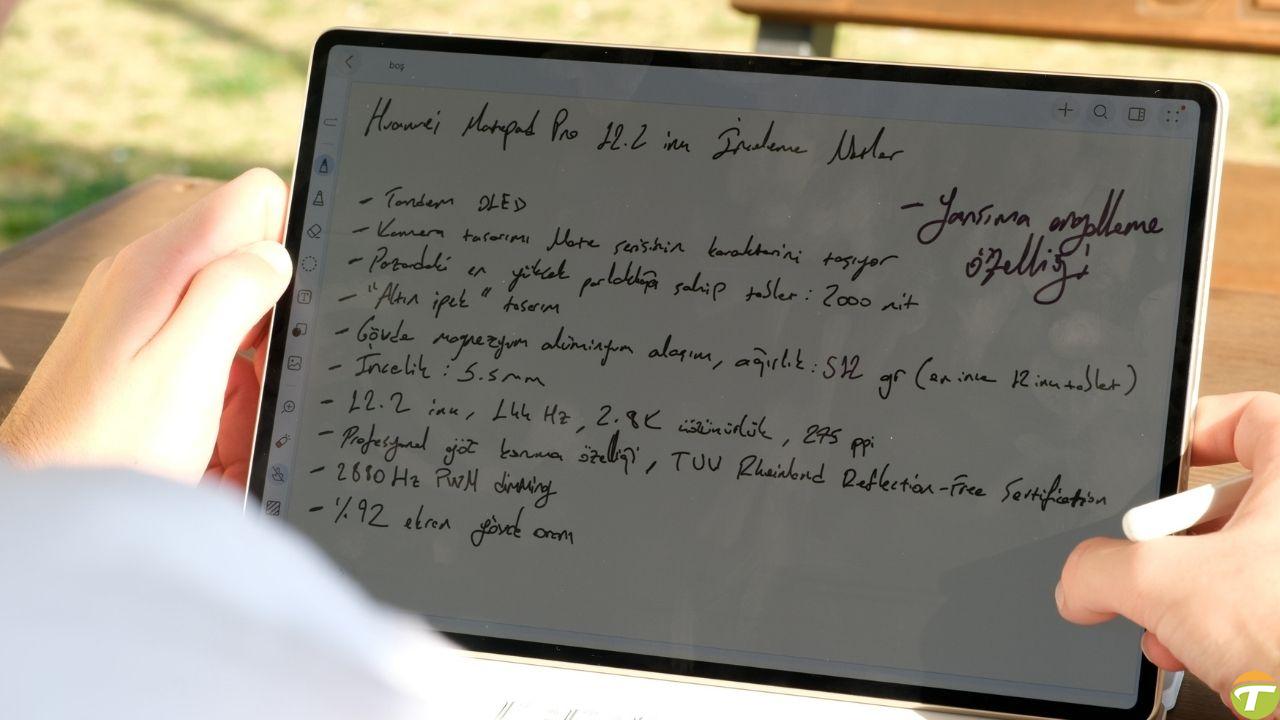 boş
Huawei Matepad Pro 12.2 inç İnceleme Notlar
- Tandem OLED
- Yansıma engelleme
özelliği
- Kamera tasarımı Mate serisinin karakterini taşıyor
- Pazardaki en yüksek parlaklığa sahip tablet: 2000 nit
- "Altın ipek" tasarım
- Gövde magnezyum alüminyum alaşım, ağırlık: 512 gr (en ince 12 inç tablet)
- İncelik: 5.5 mm
- 12.2 inç, 144 Hz, 2.8K çözünürlük, 275 ppi
- Profesyonel göz koruma özelliği, TUV Rheinland Reflection-Free Sertification
- 2880 Hz PWM dimming
- %92 ekran gövde oranı
T